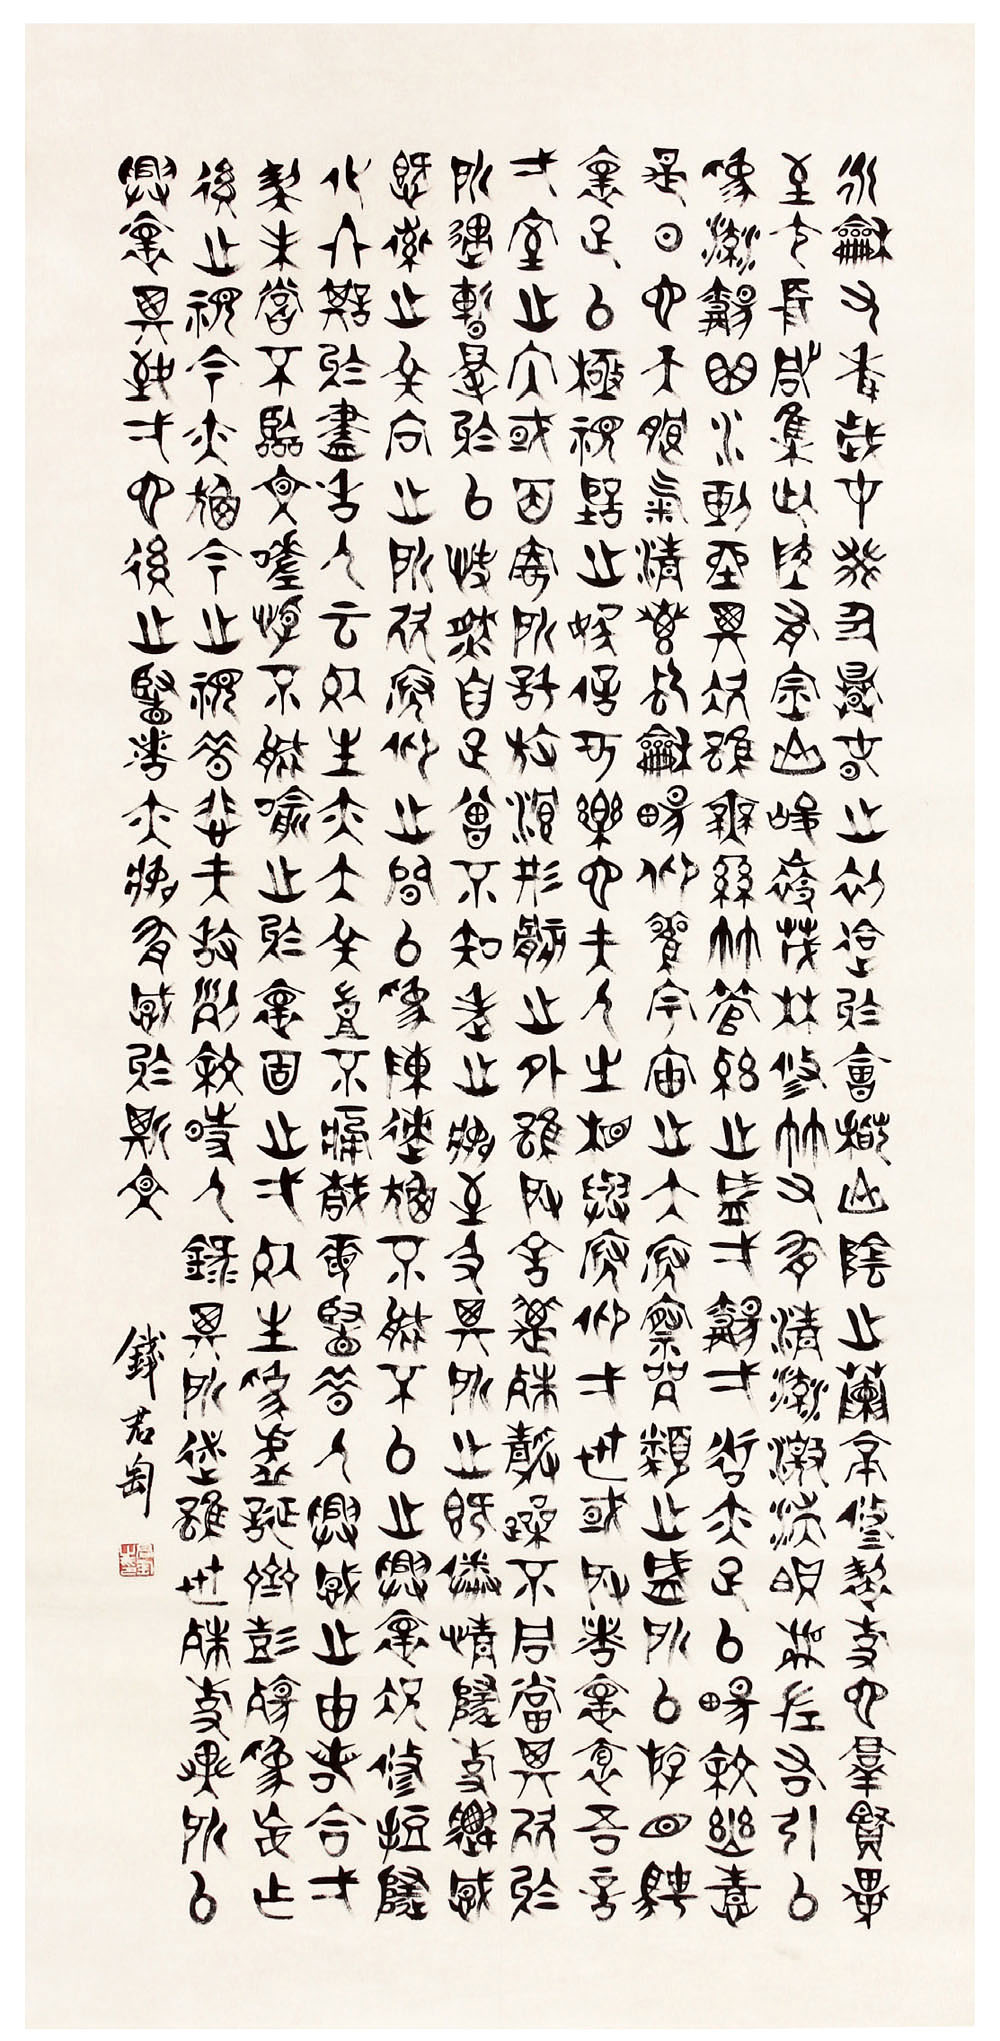 永龢九年歲在癸丑暮春之初會於會稽山陰之蘭亭修禊事也群賢畢
至少長咸集此地有崇山峻嶺茂林修竹又有清流激湍映帶左右引以
為流觴曲水列坐其次雖無絲竹管弦之盛一觴一詠亦足以暢敘幽情
是日也天朗氣清惠風龢暢仰觀宇宙之大俯察品類之盛所以游目騁
懷足以極視聽之娛信可樂也夫人之相與俯仰一世或取諸懷抱悟言
一室之內或因寄所託放浪形骸之外雖取舍萬殊靜躁不同當其欣於
所遇暫得於己快然自足曾不知老之將至及其所之既倦情隨事遷感
慨係之矣向之所欣俯仰之間以為陳迹猶不能不以之興懷況修短隨
化終期於盡古人云死生亦大矣豈不痛哉每覽昔人興感之由若合一
契未嘗不臨文嗟悼不能喻之於懷固知一死生為虛誕齊彭殤為妄作
後之視今亦猶今之視昔悲夫故列敘時人錄其所述雖世殊事異所以
興懷其致一也後之覽者亦將有感於斯文
錢君匋